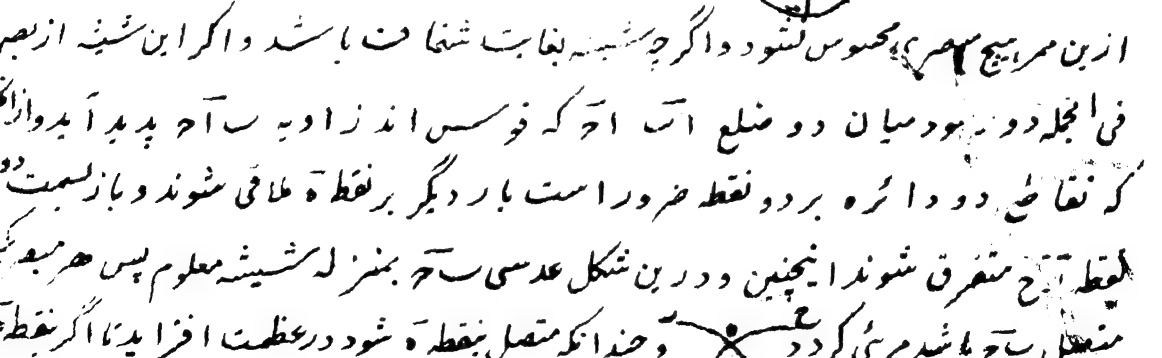 ازین ممر هیچ مبصری محسوس نشود و اگرچه شیشه بغایت شفاف باشد و اگر این شیشه از بصر
فی الجمله دور بود میان دو ضلع اب اح که قوس اند زاویه ب اح پدید آید و از
که تقاطع دو دائره بر دو نقطه ضرور است بار دیگر بر نقطه ه ملاقی شوند و باز بسمت دو
نقطه ح متفرق شوند اینچنین و درین شکل عدسی ب ح بمنزله شیشه معلوم پس هر مبصر
متصل ب ح باشد مرئی گردد و چندانکه متصل بنقطه ه شود در عظمت افزاید تا اگر بنقطه